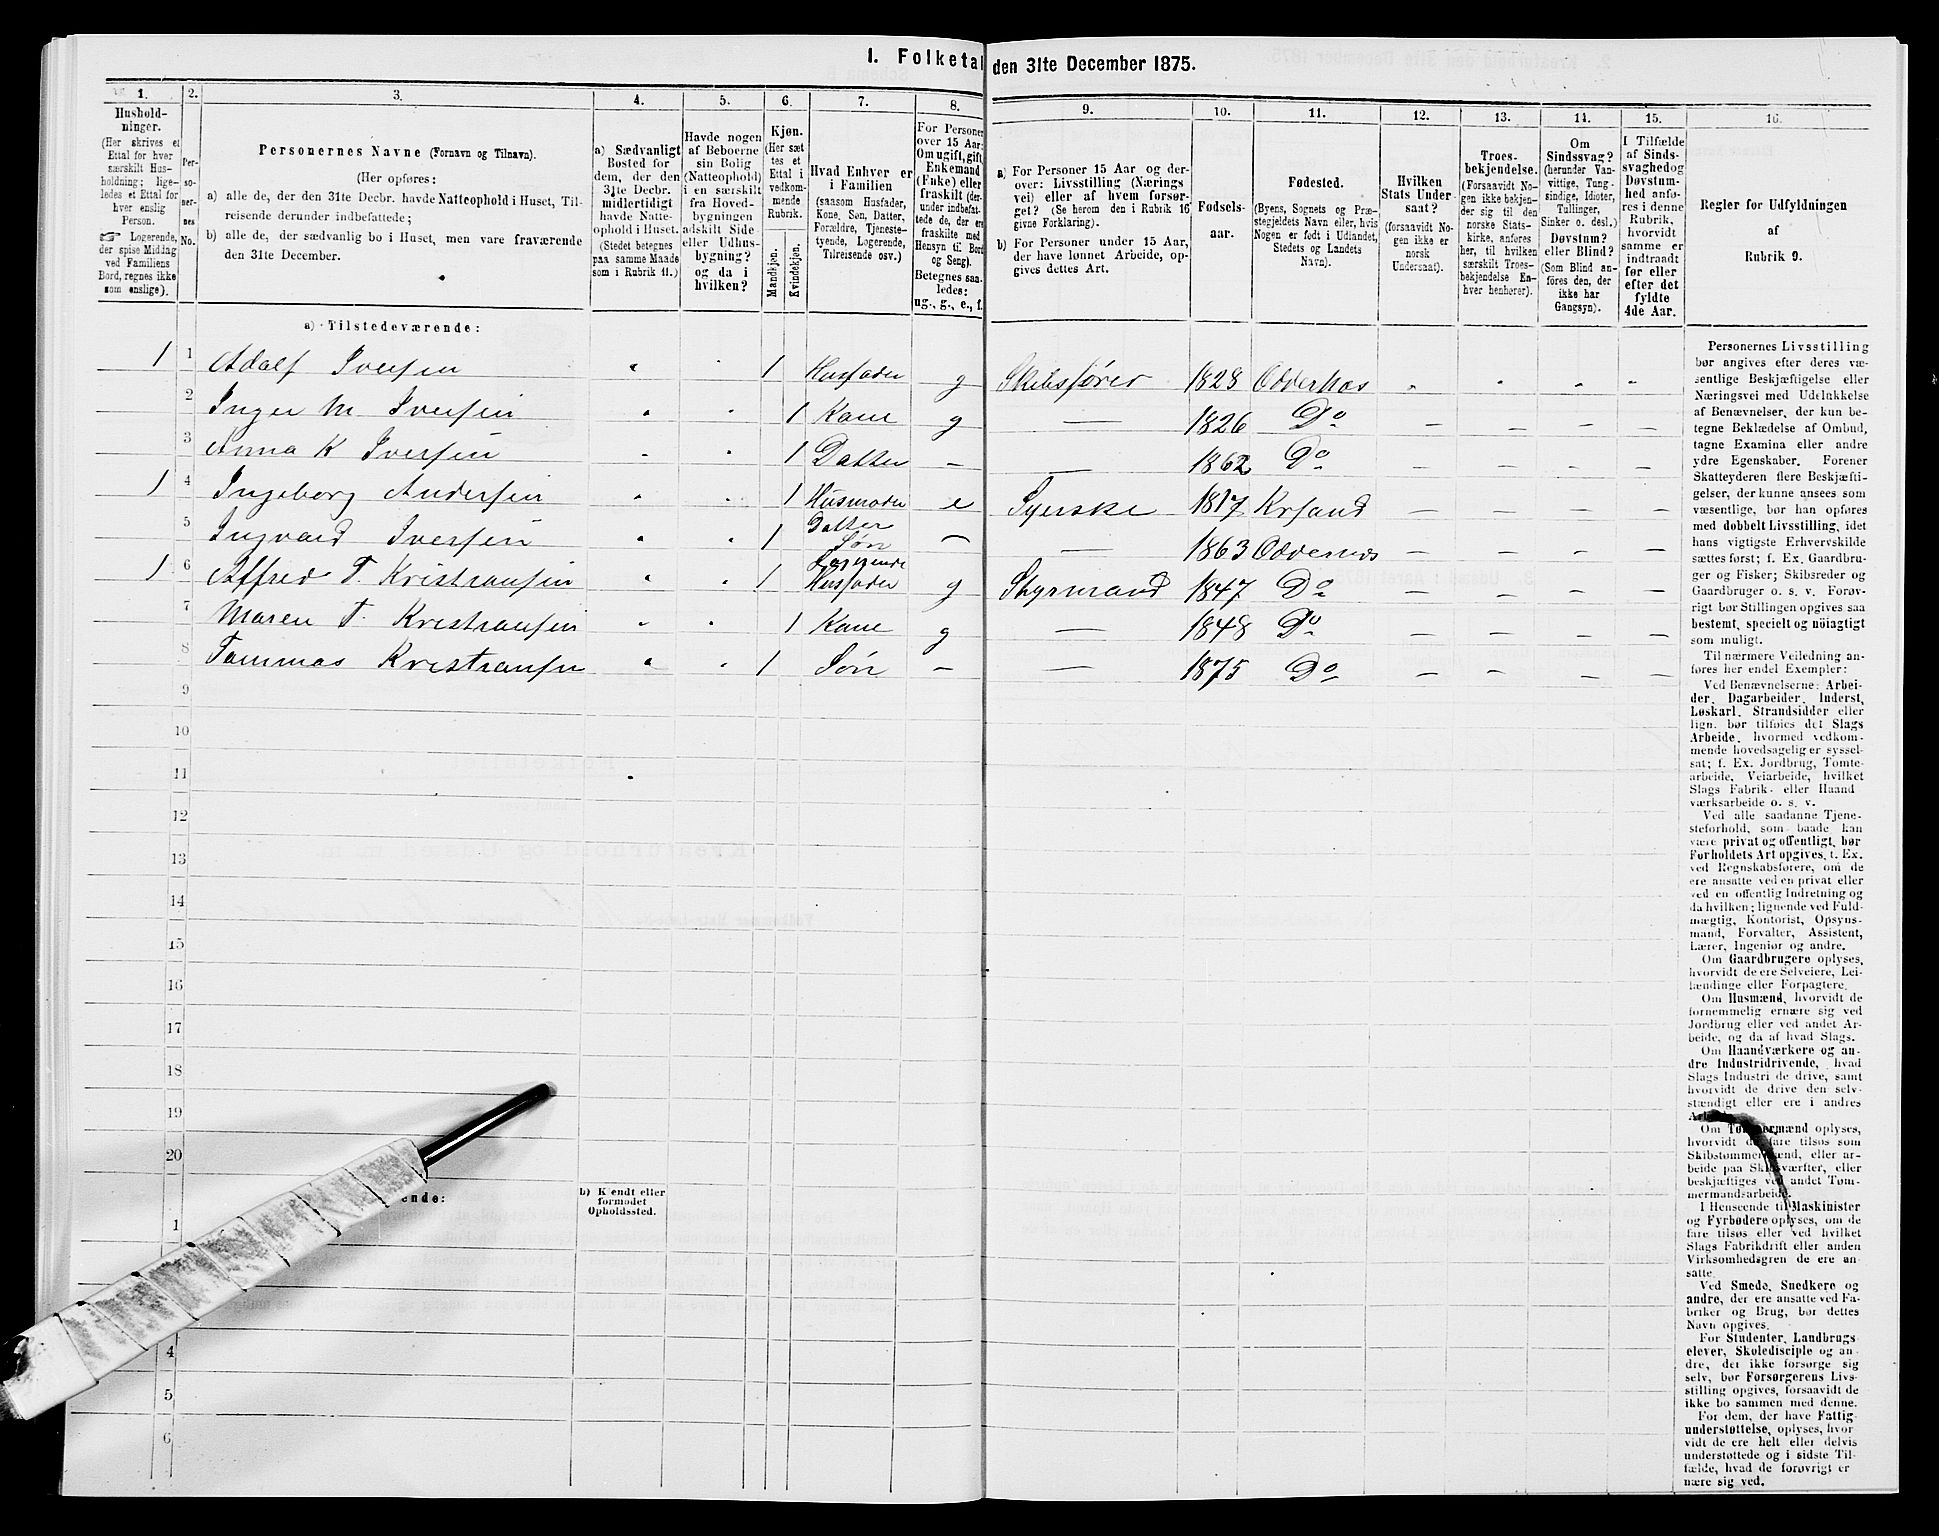 I. Folketal den 31te December 1875.
1. 2. 3. 4. 5. 6. 7. 8. 9. 10. 11. 12. 13. 14. 15. 16.
Husholdninger.
(Her skrives et
Ettal for hver
særskilt Hus-
holdning; lige-
ledes et Ettal for
hver enslig
Person.
☞ Logerende,
der spise Middag
ved Familiens
Bord, regnes ikke
som enslige).
Per-
so-
ner-
nes
No.
Personernes Navne (Fornavn og Tilnavn).
(Her opføres:
a) alle de, der den 31te Decbr. havde Natteophold i Huset, Til-
reisende derunder indbefattede;
b) alle de, der sædvanlig bo i Huset, men vare fraværende
den 31te December.
a) Sædvanligt
Bosted for
dem, der den
31te Decbr.
midlertidigt
havde Natte-
ophold i Huset.
(Stedet betegnes
paa samme Maade
som i Rubrik 11.)
Havde nogen
af Beboerne
sin Bolig
(Natteophold)
i en særskilt
fra Hoved-
bygningen
adskilt Side
eller Udhus-
bygning?
og da i
hvilken?
Kjøn.
(Her sæt-
tes et
Ettal i
vedkom-
mende
Rubrik.
Mandkjøn.
Kvindekjøn.
Hvad Enhver er
i Familien
(saasom Husfader,
Kone, Søn, Datter,
Forældre, Tjeneste-
tyende, Logerende,
Tilreisende osv.)
For Personer
over 15 Aar:
Om ugift, gift,
Enkemand
(Enke) eller
fraskilt (der-
under indbefat-
tede de, der ere
fraskilte med
Hensyn til Bord
og Seng).
Betegnes saa-
ledes:
ug., g., e., f.
a) For Personer 15 Aar og der-
over: Livsstilling (Nærings
vei) eller af hvem forsør-
get? (Se herom den i Rubrik 16
givne Forklaring).
b) For Personer under 15 Aar,
der have lønnet Arbeide, op-
gives dettes Art.
Fødsels-
aar.
Fødested.
(Byens, Sognets og Præ-
stegjeldets Navn eller, hvis
Nogen er født i Udlandet,
Stedets og Landets
Navn).
Hvilken
Stats Under-
saat?
(forsaavidt No-
gen ikke er
norsk
Undersaat).
Troes-
bekjendelse.
(Forsaavidt No-
gen ikke bekjen-
der sig til den
norske Stats-
kirke, anføres
her, til hvilken
særskilt Troes-
bekjendelse En-
hver henhører).
Om
Sindssvag?
(herunder Van-
vittige, Tung-
sindige, Idioter,
Tullinger,
Sinker o. desl.)
Døvstum?
eller Blind?
(Som Blind an-
føres den, der
ikke har
Gangsyn).
I Tilfælde
af Sinds-
svaghed og
Døvstum-
hed anfø-
res i denne
Rubrik,
hvorvidt
samme er
indtraadt
før eller
efter det
fyldte
4de Aar.
Regler for Udfyldningen
af
Rubrik 9.
a) Tilstedeværende:
1 1 Adolf Iversen 1 Husfader g Skibsfører 1828 Oddernæs
2 Inger M Iversen 1 Kone g — 1826 Do — — — —
3 Anna K Iversen 1 Datter — — 1862 Do — — — —
1 4 Ingeborg Andersen 1 Husmoder e Syerske 1817 Krsand — — — —
5 Ingvald Iversen 1 Datter Søn — — 1863 Oddernæs — — — —
1 6 Alfred T. Kristiansen 1 Logerende Husfader g Styrmand 1847 Do — — — —
7 Maren T. Kristiansen 1 Kone g — 1848 Do — — — —
8 Tommas Kristiansen 1 Søn — — 1875 Do — — — —
9
10
11
12
13
14
15
16
17
18
19
20
ende:
b) Kjendt eller
formodet
Opholdssted.
1
4
5
6
Personernes Livsstilling
bør angives efter deres væ-
sentlige Beskjæftigelse eller
Næringsvei med Udelukkelse
af Benævnelser, der kun be-
tegne Beklædelse af Ombud,
tagne Examina eller andre
ydre Egenskaber. Forener
Skatteyderen flere Beskjæfti-
gelser, der kunne ansees som
væsentlige, bør han opføres
med dobbelt Livsstilling, idet
hans vigtigste Erhvervskilde
sættes først; f. Ex. Gaardbru-
ger og Fisker; Skibsreder og
Gaardbruger o. s. v. Forøv-
rigt bør Stillingen opgives saa
bestemt, specielt og nöiagtigt
som muligt.
Til nærmere Veiledning an-
føres her endel Exempler:
Ved Benævnelserne: Arbei-
der, Dagarbeider, Inderst,
Løskarl, Strandsidder eller
lign. bør tilføies det Slags
Arbeide, hvormed vedkom-
mende hovedsagelig er syssel-
sat; f. Ex. Jordbrug, Tomte-
arbeide, Veiarbeide, hvilket
Slags Fabrik- eller Haand
værksarbeide o. s. v.
Ved alle saadanne Tjene-
steforhold, som baade kan
være privat og offentligt, bør
Forholdets Art opgives, f. Ex.
ved Regnskabsførere, om de
ere ansatte ved en privat eller
ved en offentlig Indretning og
da hvilken; lignende ved Fuld-
mægtig, Kontorist, Opsyns-
mand, Forvalter, Assistent,
Lærer, Ingeniør og andre.
Om Gaardbrugere oplyses,
hvorvidt de ere Selveiere, Lei-
lændinge eller Forpagtere.
Om Husmænd, hvorvidt de
fornemmelig ernære sig ved
Jordbrug eller ved andet Ar-
beide, og da af hvad Slags.
Om Haandværkere og an-
dre Industridrivende, hvad
Slags Industri de drive, samt
hvorvidt de drive den selv-
stændigt eller ere i andres
Om Tømmermænd oplyses,
hvorvidt de fare tilsøs som
Skibstømmermænd, eller ar-
beide paa Skibsværfter, eller
beskjæftiges ved andet Tøm-
mermandsarbeide.
I Henseende til Maskinister
og Fyrbødere oplyses, om de
fare tilsøs eller ved hvilket
Slags Fabrikdrift eller anden
Virksomhedsgren de ere an-
satte.
Ved Smede, Snedkere og
andre, der ere ansatte ved Fa-
briker og Brug, bør dettes
Navn opgives.
For Studenter, Landbrugs
elever, Skoledisciple og an-
dre, der ikke forsørge sig
selv, bør Forsørgerens Livs-
stilling opgives, forsaavidt de
ikke bo sammen med denne.
For dem, der have Fattig-
understøttelse, oplyses, hvor
vidt de ere helt eller delvis
understøttede og i sidste Til-
fælde, hvad de forøvrigt er
nære sig ved.